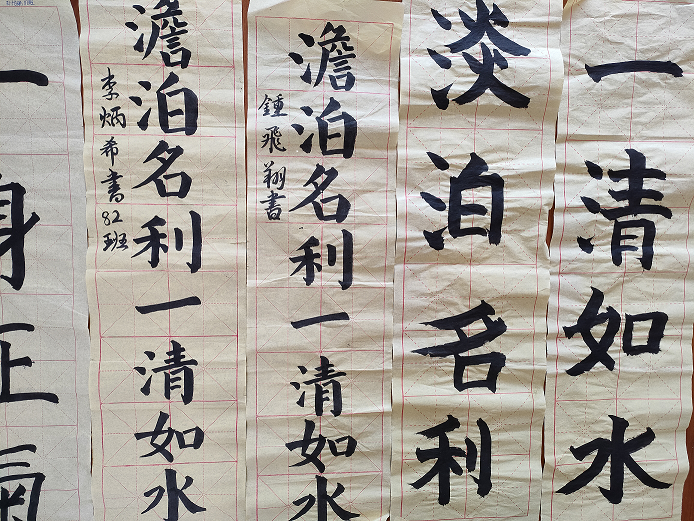 一身正氣
澹泊名利一清如水
李炳希書82班
澹泊名利一清如水
鍾飛翔書
淡泊名利
一清如水